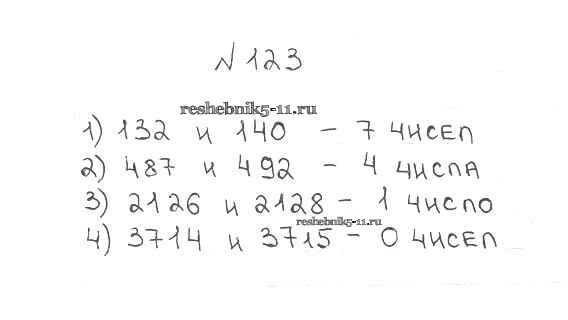 № 123
reshebnik5-11.ru
1) 132 и 140 - 7 чисел
2) 487 и 492 - 4 числа
3) 2126 и 2128 - 1 число
reshebnik5-11.ru
4) 3714 и 3715 - 0 чисел